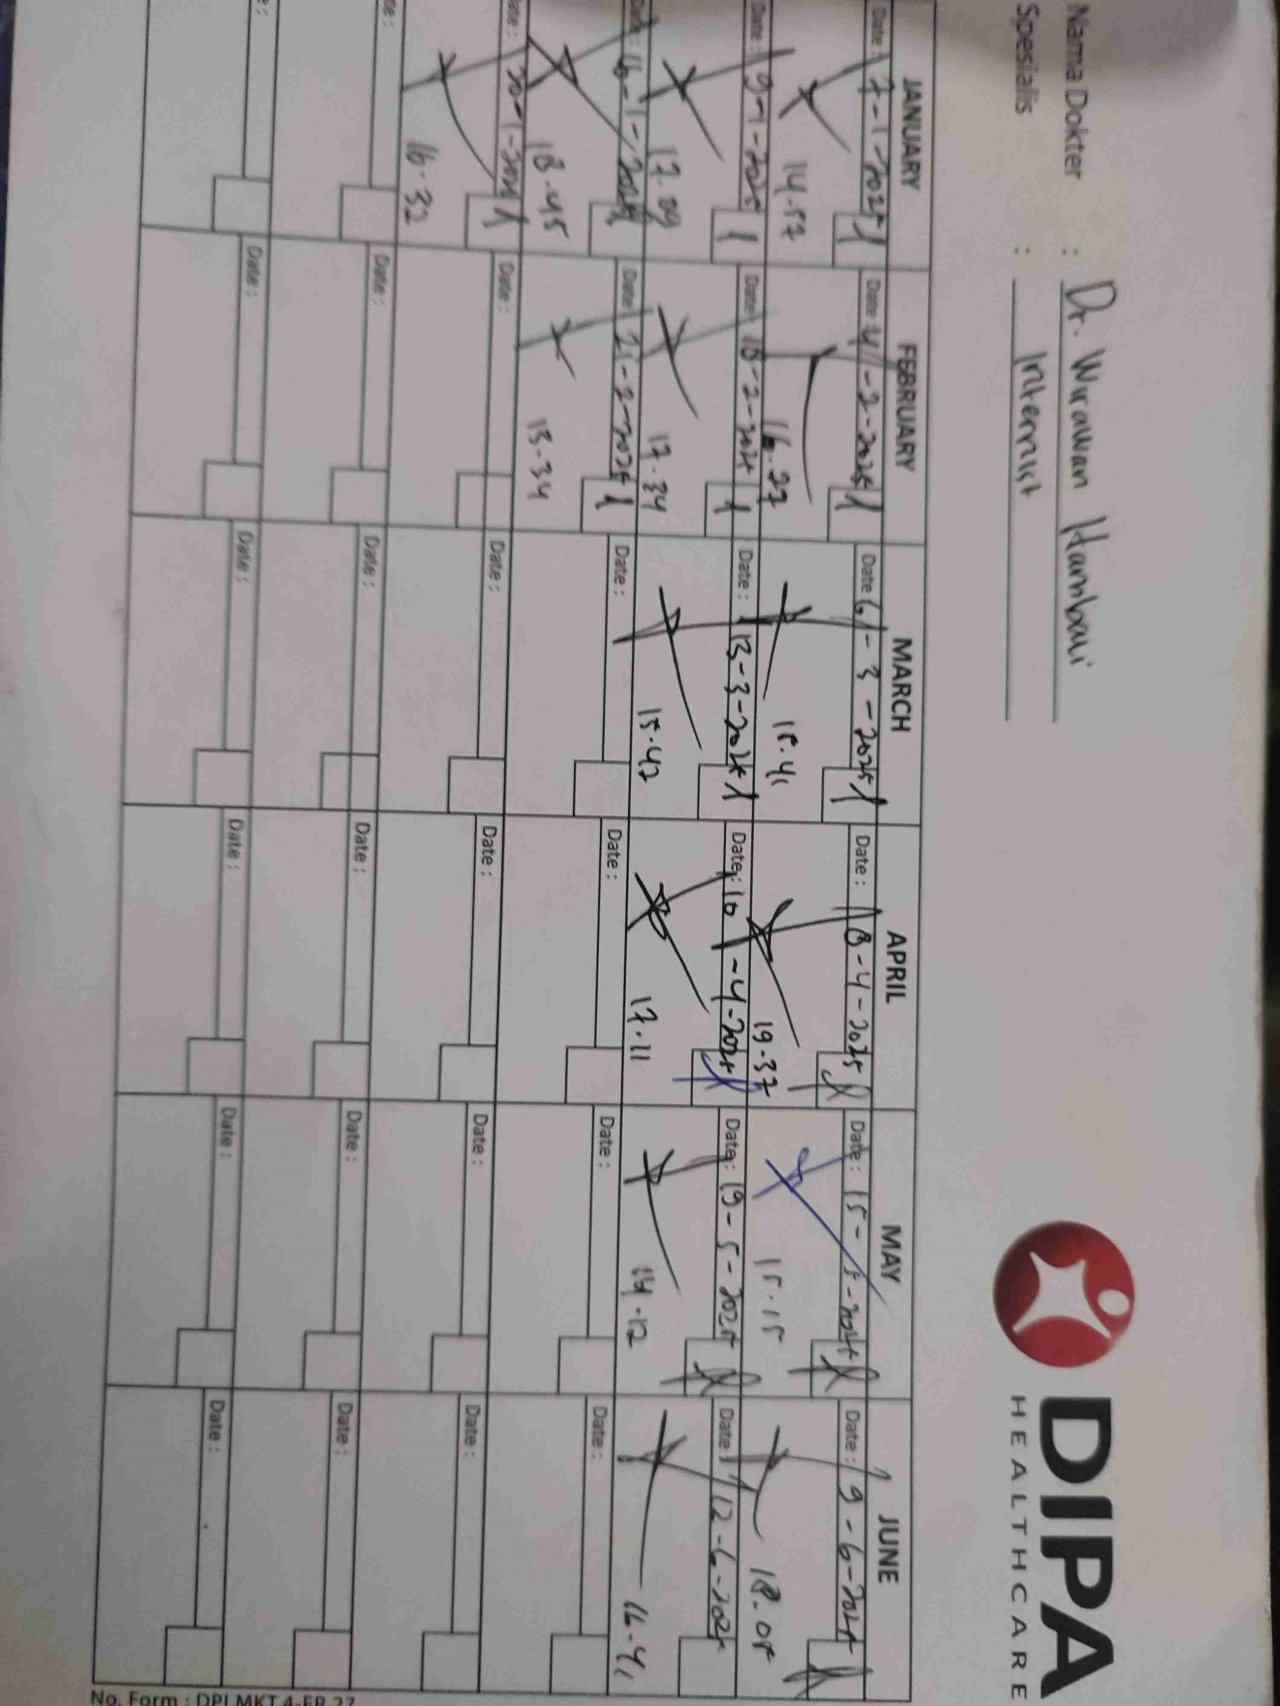 Nama Dokter : Dr. Wirawan Hambali
Spesialis : Internist
DIPA
HEALTHCARE
JANUARY FEBRUARY MARCH APRIL MAY JUNE
Date : 7-1-2025 Date : 4-2-2025 Date : 6-3-2025 Date : 8-4-2025 Date : 15-5-2025 Date : 9-6-2025
14.57 16.27 15.41 19.37 15.15 18.05
Date : 9-1-2025 Date : 18-2-2025 Date : 13-3-2025 Date : 10-4-2025 Date : 19-5-2025 Date : 12-6-2025
17.09 17.34 15.42 17.11 14.12 16.41
Date : 16-1-2025 Date : 21-2-2025 Date : Date : Date : Date :
18.45 13.34
Date : 30-1-2025 Date : Date : Date : Date : Date :
16.32
Date : Date : Date : Date : Date :
Date : Date : Date : Date : Date :
No. Form : DPI.MKT.4-FR.27